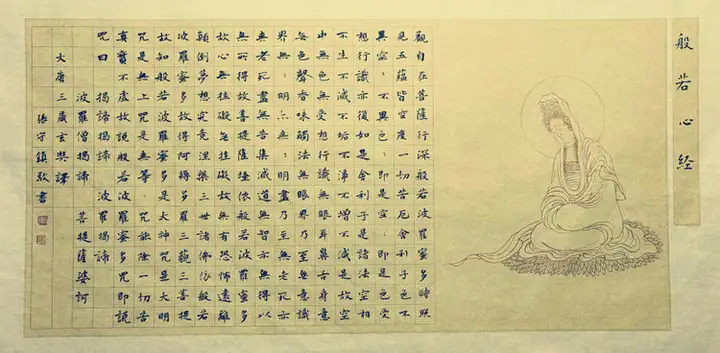 般若心经
觀自在菩薩行深般若波羅蜜多時照
見五蘊皆空度一切苦厄舍利子色不
異空：不異色：即是空：即是色受
想行識亦復如是舍利子是諸法空相
不生不滅不垢不淨不增不減是故空
中無色無受想行識無眼耳鼻舌身意
無色聲香味觸法無眼界乃至無意識
界無：明亦無：明盡乃至無老死亦
無老死盡無苦集滅道無智亦無得以
無所得故菩提薩埵依般若波羅蜜多
故心無挂礙無挂礙故無有恐怖遠離
顛倒夢想究竟涅槃三世諸佛依般若
波羅蜜多故得阿耨多羅三藐三菩提
故知般若波羅蜜多是大神咒是大明
咒是無上咒是無等：咒能除一切苦
真實不虛故說般若波羅蜜多咒即說
咒曰 揭諦揭諦 波羅揭諦
波羅僧揭諦 菩提薩婆訶
大唐三藏玄奘譯
張守鎮敬書